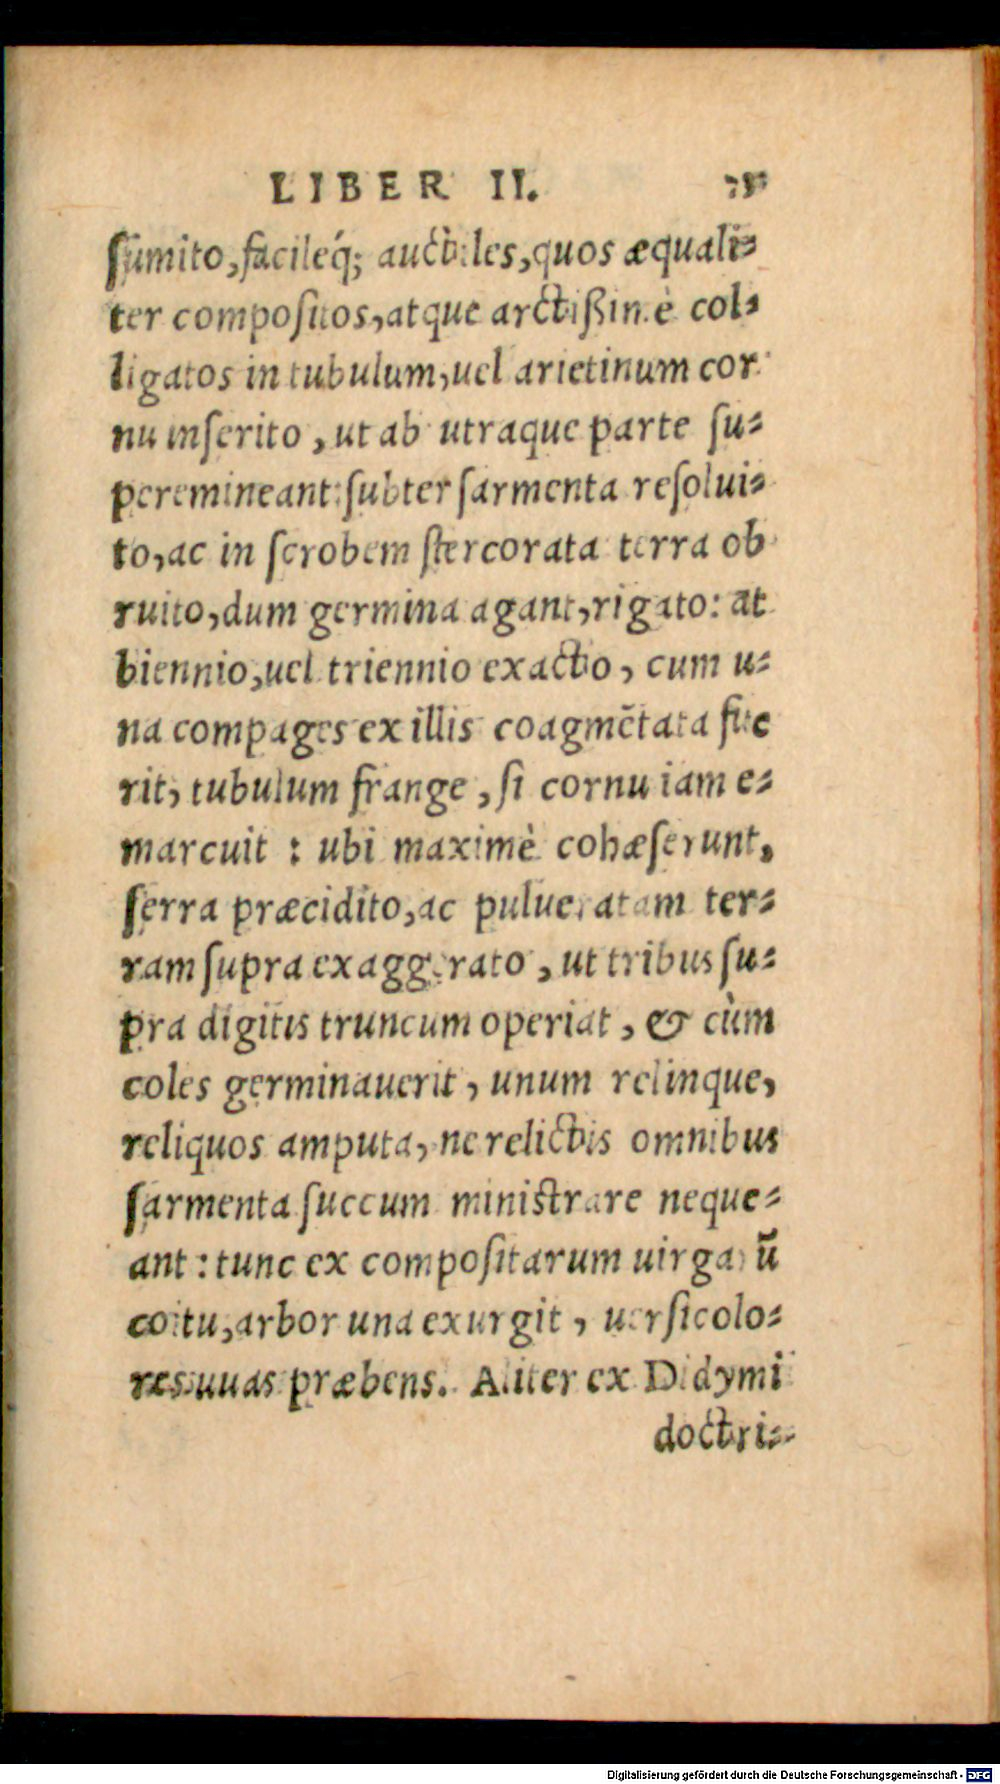 LIBER II.
ſumito, facileq́; auctiles, quos æquali-
ter compoſitos, atque arctißimè col-
ligatos in tubulum, uel arietinum cor
nu inſerito, ut ab utraque parte ſu-
peremineant: ſubter ſarmenta reſolui-
to, ac in ſcrobem ſtercorata terra ob
ruito, dum germina agant, rigato: at
biennio, uel triennio exacto, cum u-
na compages ex illis coagmētata fue
rit, tubulum frange, ſi cornu iam e-
marcuit: ubi maximè cohæſerunt,
ſerra præcidito, ac pulueratam ter-
ram ſupra exaggerato, ut tribus ſu-
pra digitis truncum operiat, & cùm
coles germinauerit, unum relinque,
reliquos amputa, ne relictis omnibus
ſarmenta ſuccum miniſtrare neque-
ant: tunc ex compoſitarum uirgarū
coitu, arbor una exurgit, uerſicolo-
res uuas præbens. Aliter ex Didymi
doctri-
Digitalisierung gefördert durch die Deutsche Forschungsgemeinschaft - DFG